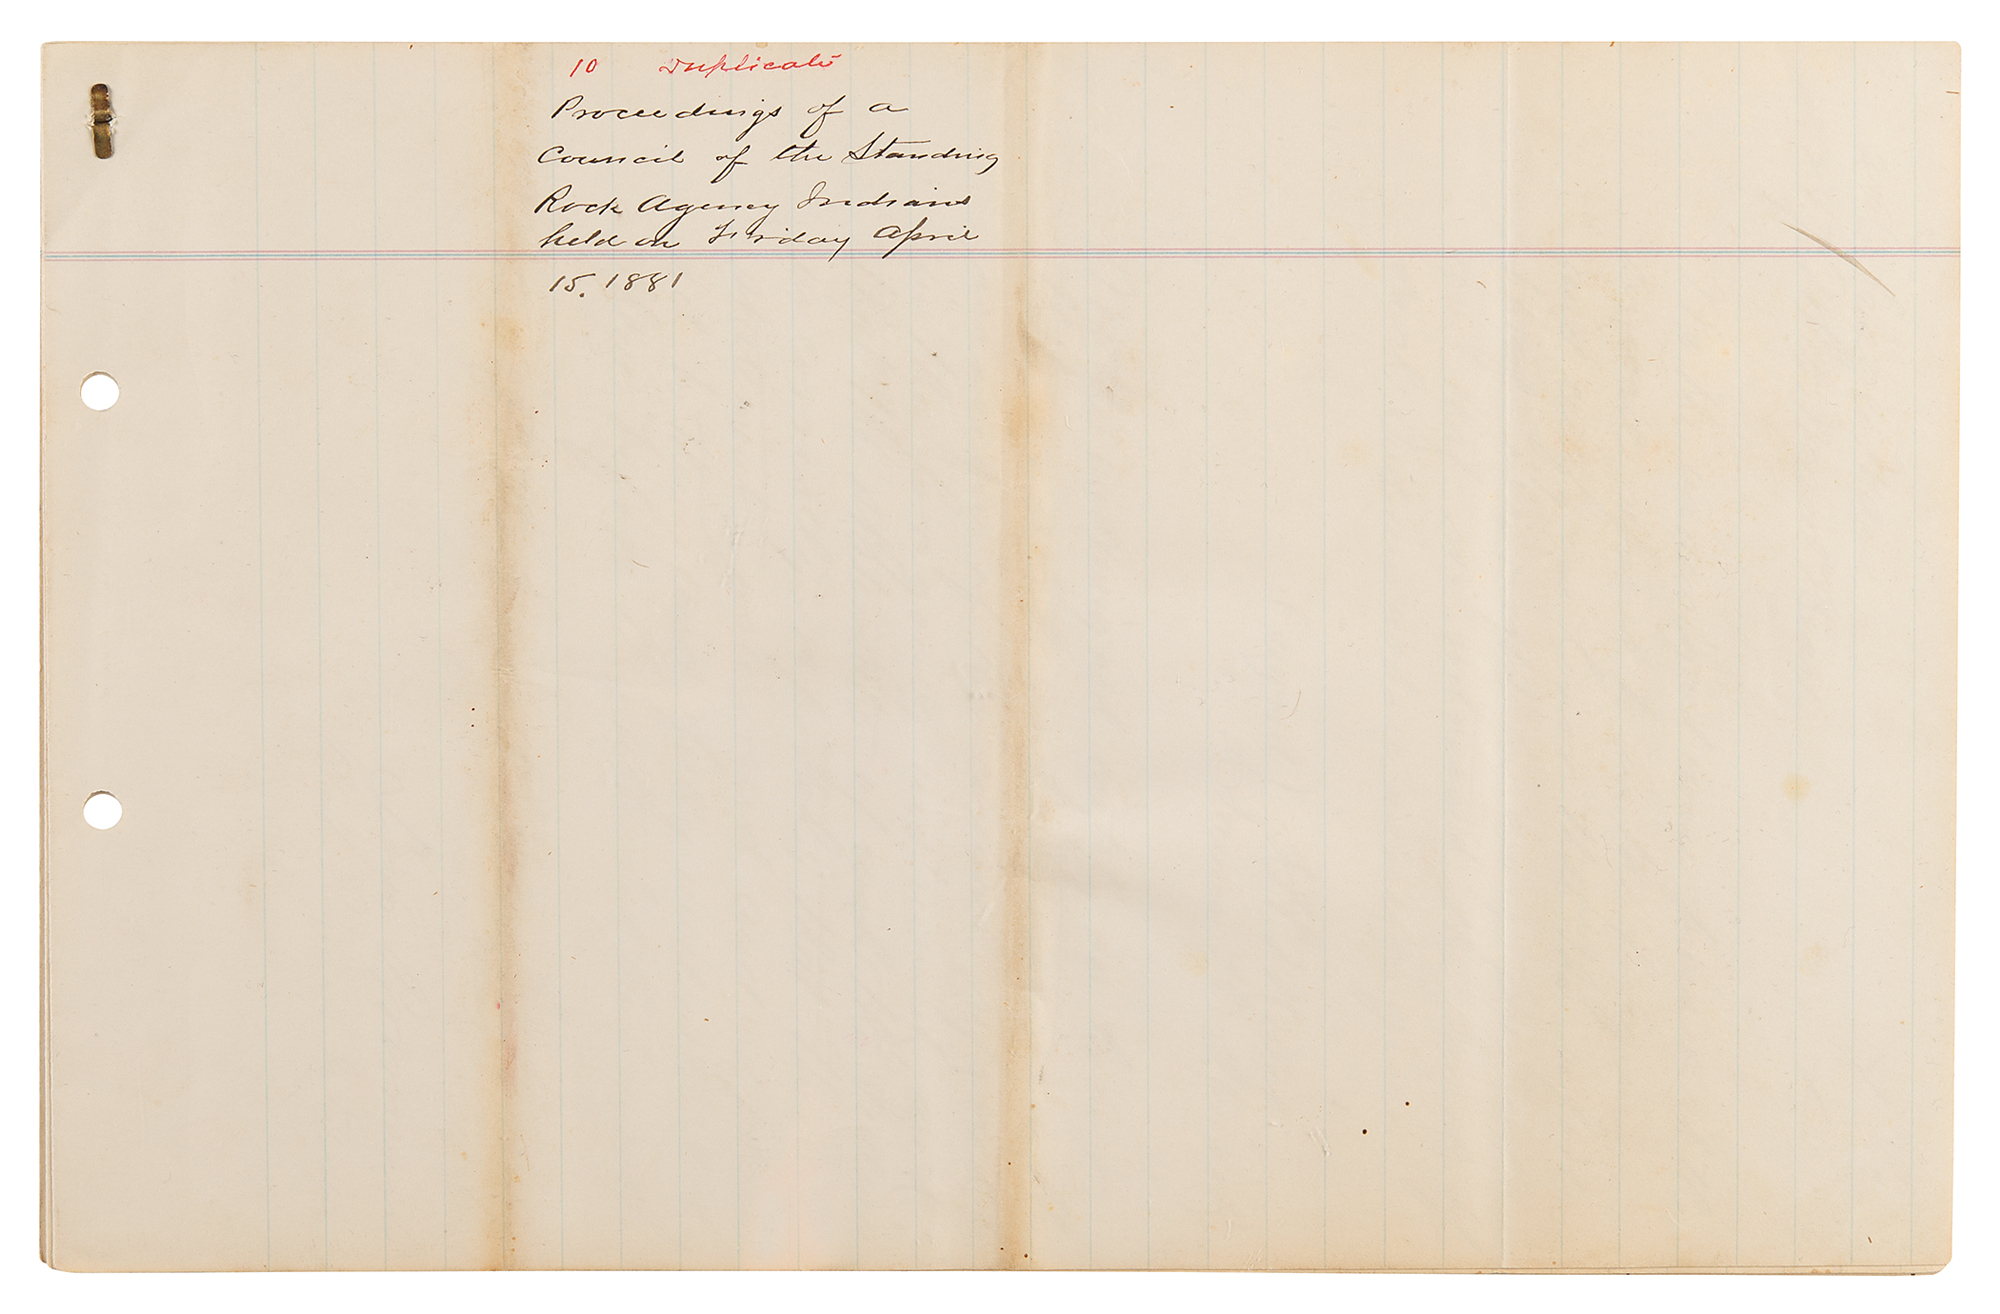 10 Duplicate
Proceedings of a
Council of the Standing
Rock Agency Indians
held on Friday April
15. 1881